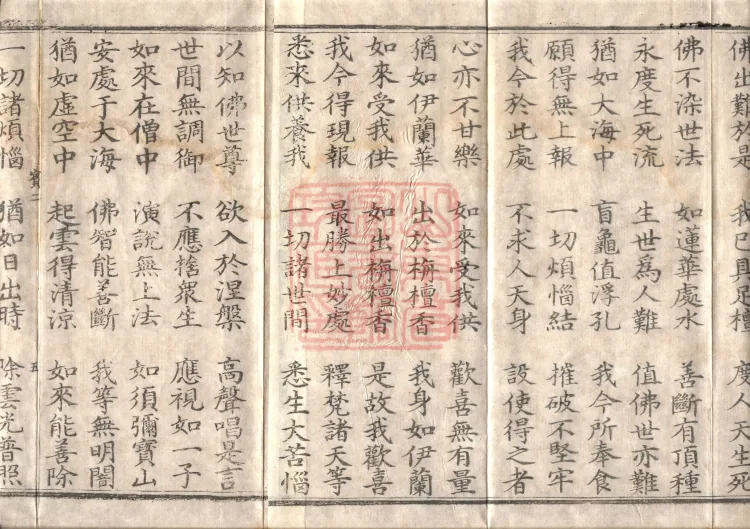 佛出難於是 我已具足檀 度人天生死
佛不染世法 如蓮華處水 善斷有頂種
永度生死流 生世爲人難 值佛世亦難
猶如大海中 盲龜值浮孔 我今所奉食
願得無上報 一切煩惱結 摧破不堅牢
我今於此處 不求人天身 設使得之者
心亦不甘樂 如來受我供 歡喜無有量
猶如伊蘭華 出於栴檀香 我身如伊蘭
如來受我供 如出栴檀香 是故我歡喜
我今得現報 最勝上妙處 釋梵諸天等
悉來供養我 一切諸世間 悉生大苦惱
以知佛世尊 欲入於涅槃 高聲唱是言
世間無調御 不應捨衆生 應視如一子
如來在僧中 演說無上法 如須彌寶山
安處于大海 佛智能善斷 我等無明闇
猶如虛空中 起雲得清涼 如來能善除
寶二 五
一切諸煩惱 猶如日出時 除雲光普照